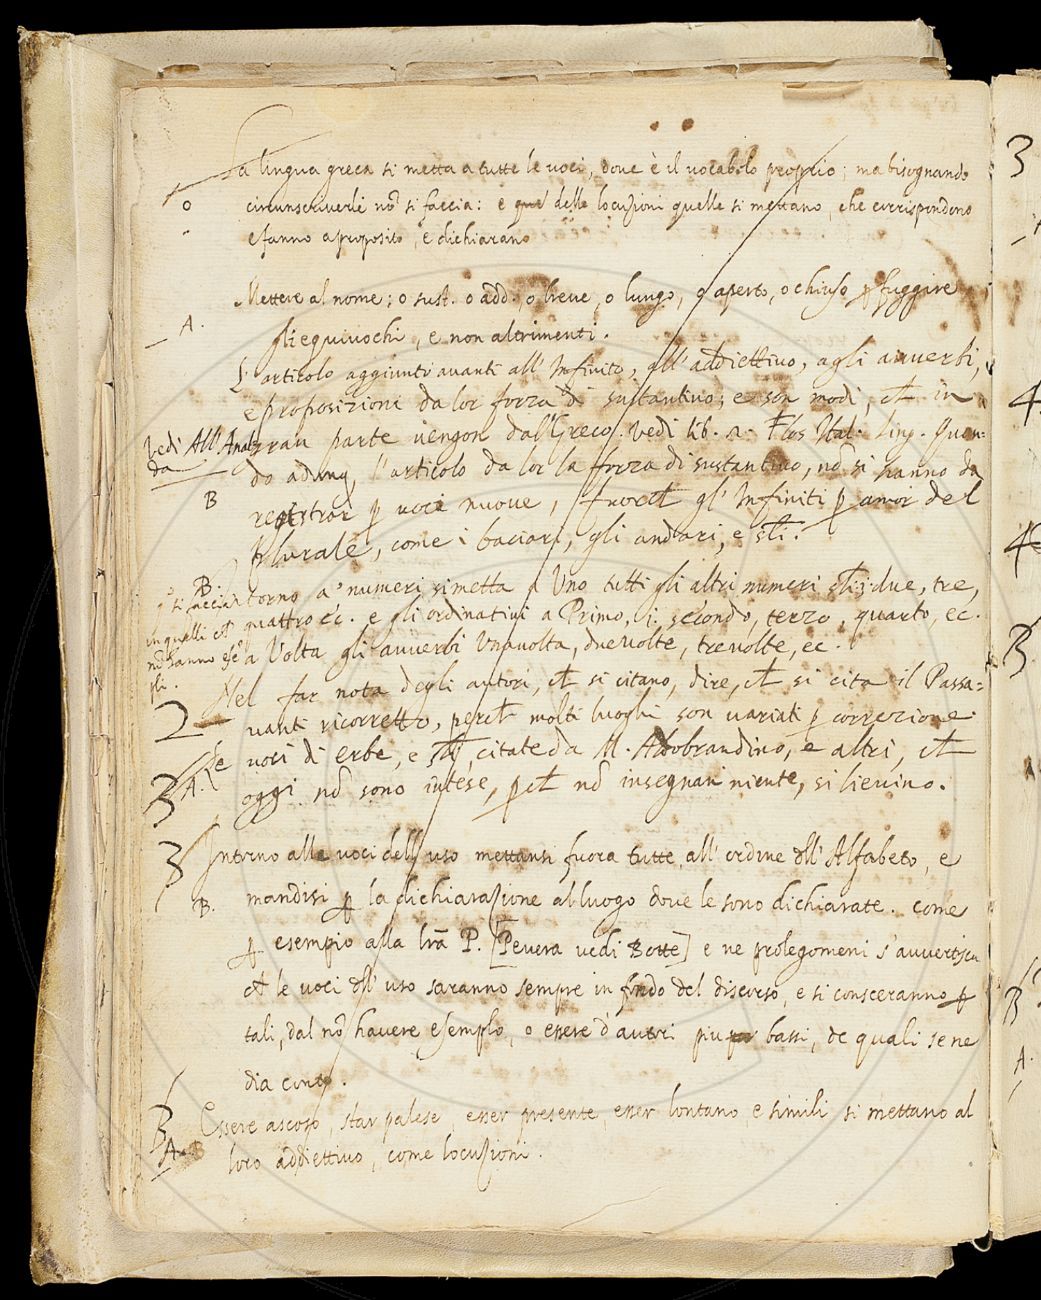 La lingua greca si metta a tutte le voci, dove è il vocabolo proprio; ma bisognando
circunscriverle nō si faccia: e delle locuzioni quelle si mettano, che corrispondono
e fanno a proposito, e dichiarano
o
Mettere al nome; o sust. o add., o breve, o lungo, o aperto, o chiuso p fuggire
A.
gli equivochi, e non altrimenti.
L'articolo aggiunto avanti all'Infinito, all'addiettivo, agli avverbi,
e proposizioni da lor forza di sustantivo; e son modi, ch in
Vedi All' Anal
gran parte vengon dall'Greco. Vedi lib. 2. Flos Ital. Ling. Quan=
da
do adunq, l'articolo da lor la forza di sustantivo, nō si hanno da
B
registrar p voci nuove, fuorch gl'Infiniti p amor del
plurale, come i baciari, gli andari, e sti.
B.
Intorno a' numeri, si metta a Uno tutti gli altri numeri due, tre,
si faccia
quattro ec. e gli ordinativi a Primo, secondo, terzo, quarto, ec.
in quelli ch
a Volta gli avverbi Unavolta, duevolte, trevolte, ec.
nō hanno
Nel far nota degli autori, ch si citano, dire, ch si cita il Passa=
2
vanti ricorretto, perch molti luoghi son variati p correzione.
Le voci di erbe, e citate da M. Aldobrandino, e altri, ch
3 A.
oggi nō sono intese, pch nō insegnan niente, si lievino.
3
Intorno alle voci dell'uso mettansi fuora tutte all'ordine dll'Alfabeto, e
B.
mandisi p la dichiarazione al luogo dove le sono dichiarate. come
p esempio alla lrā P. [Pevera vedi Botte] e ne prolegomeni s'avvertisca
ch le voci dll'uso saranno sempre in fondo del discorso, e si conosceranno p
tali, dal nō havere esempio, o essere d'autori piu bassi, de quali se ne
dia conto.
B
Essere ascoso, star palese, esser presente, esser lontano e simili si mettano al
A. B
loro addiettivo, come locuzioni.
3
4
4
B
B
A.